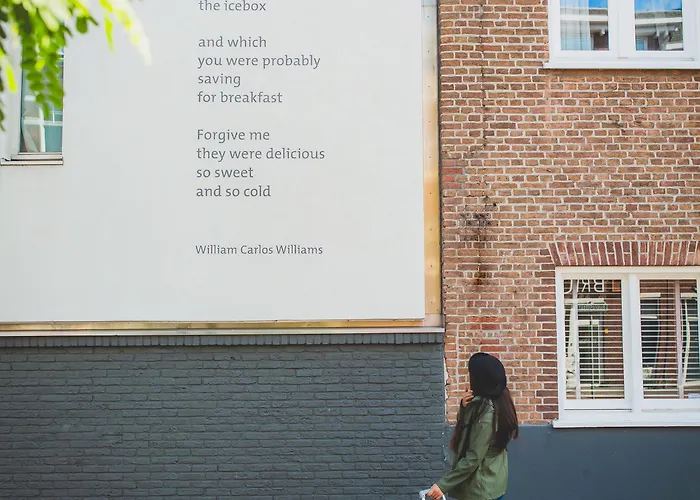 the icebox
and which
you were probably
saving
for breakfast
Forgive me
they were delicious
so sweet
and so cold
William Carlos Williams